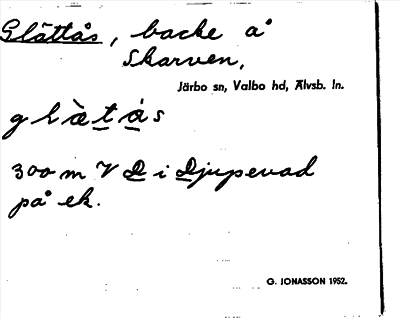 Slättås, backe å
Skarven,
Järbo sn, Valbo hd, Älvsb. ln.
300 m V D i Djupevad
på ek.
G. JONASSON 1952.